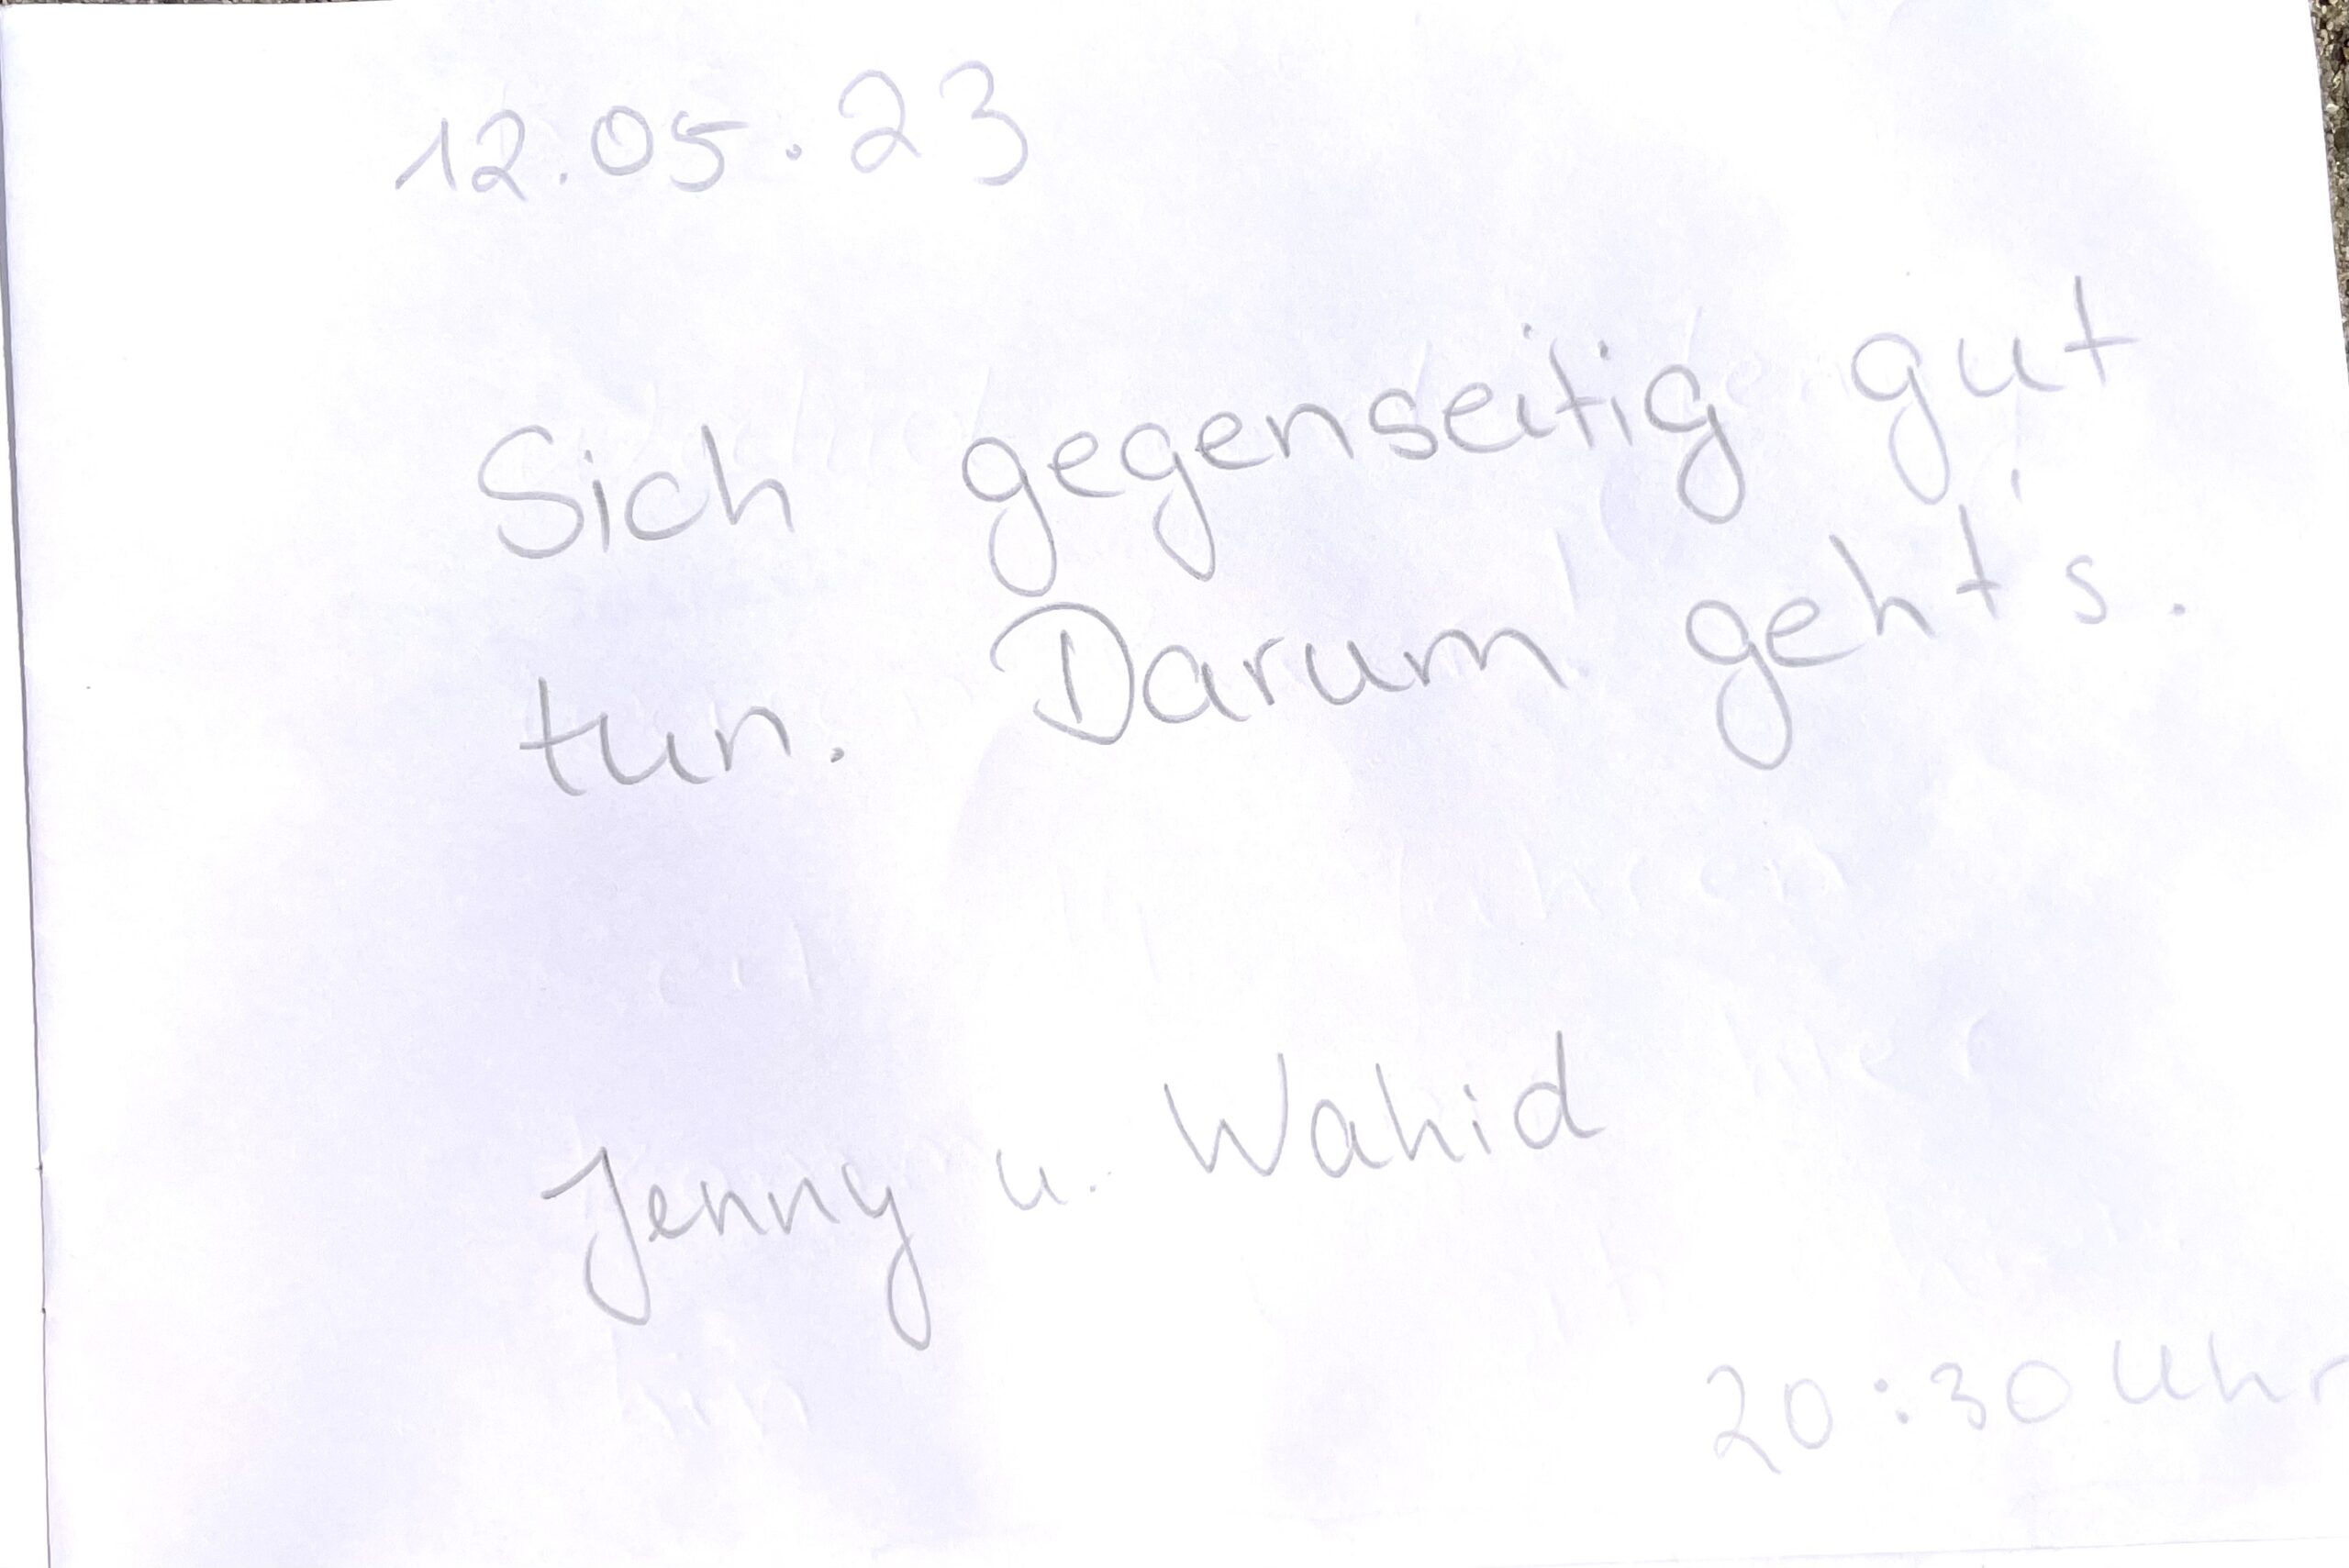 12.05.23
Sich gegenseitig gut
tun. Darum geht's.
Jenny u. Wahid
20:30 Uhr